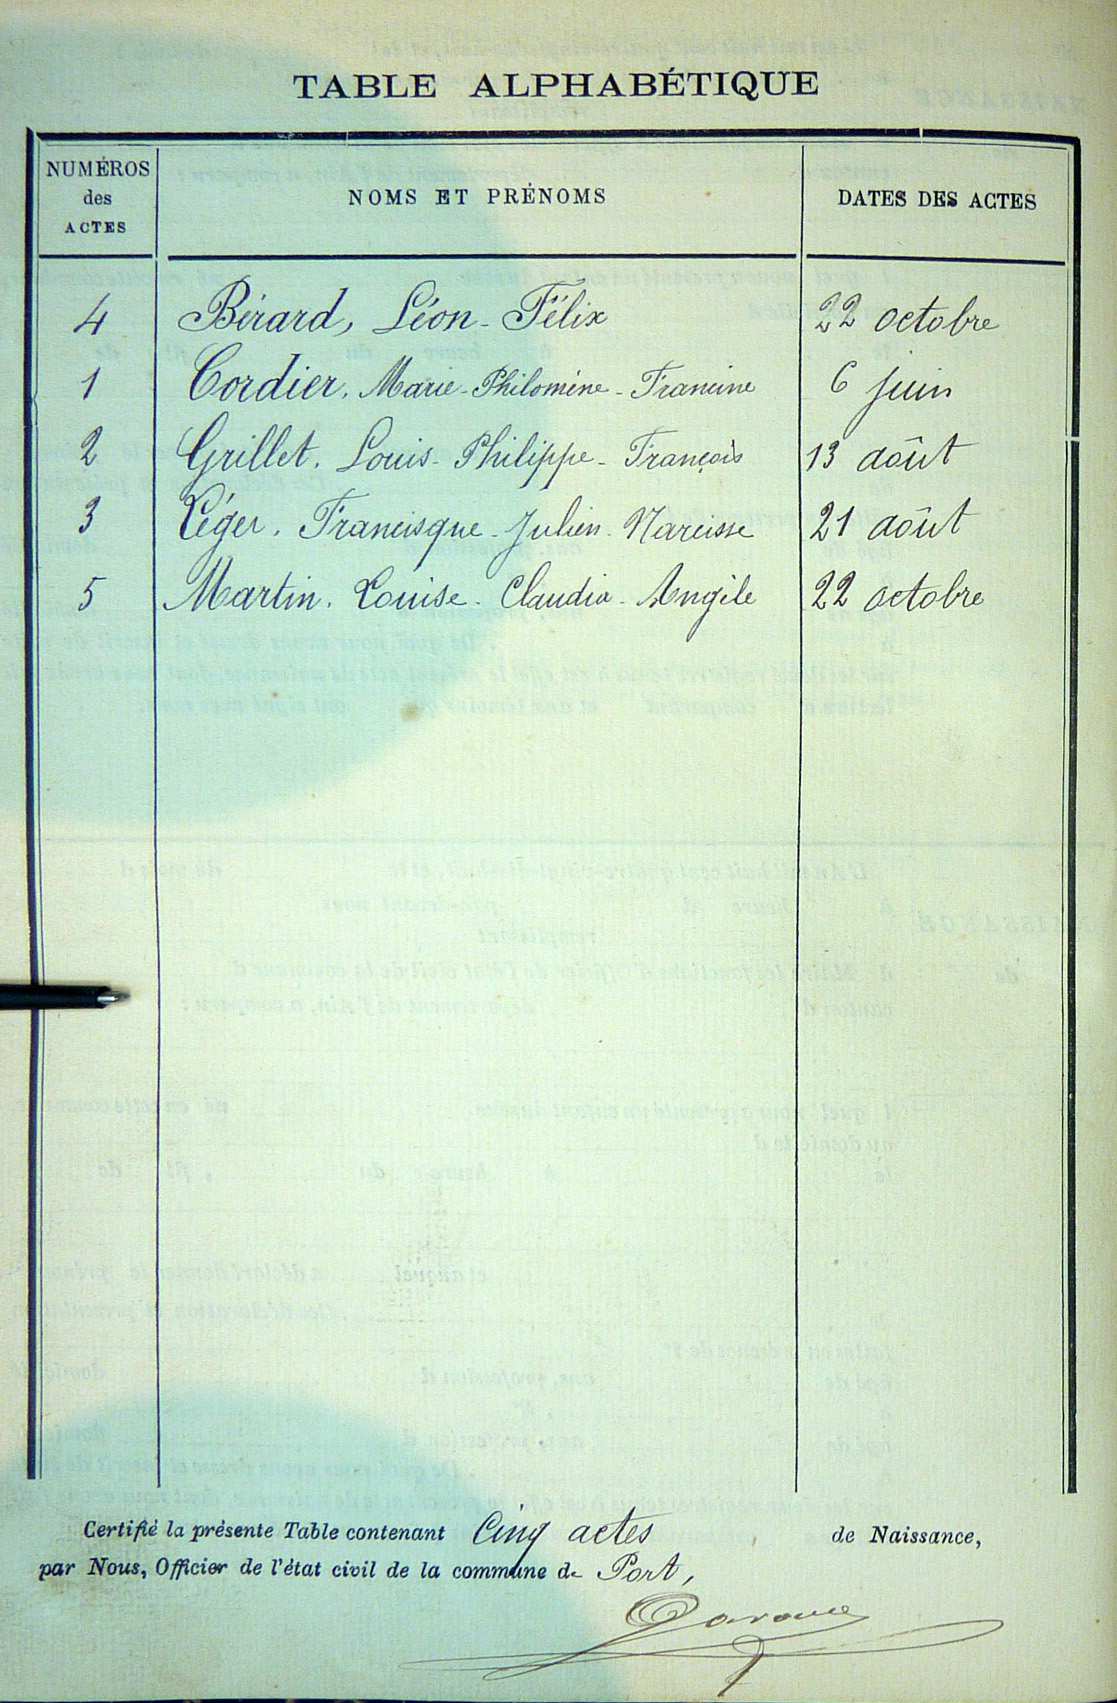 TABLE ALPHABÉTIQUE
NUMÉROS des ACTES NOMS ET PRÉNOMS DATES DES ACTES
4 Bérard, Léon-Félix 22 octobre
1 Cordier, Marie-Philomène-Francine 6 juin
2 Grillet, Louis-Philippe-François 13 août
3 Léger, Francisque-Julien-Narcisse 21 août
5 Martin, Louise-Claudia-Angèle 22 octobre
Certifié la présente Table contenant Cinq actes de Naissance,
par Nous, Officier de l'état civil de la commune de Port,